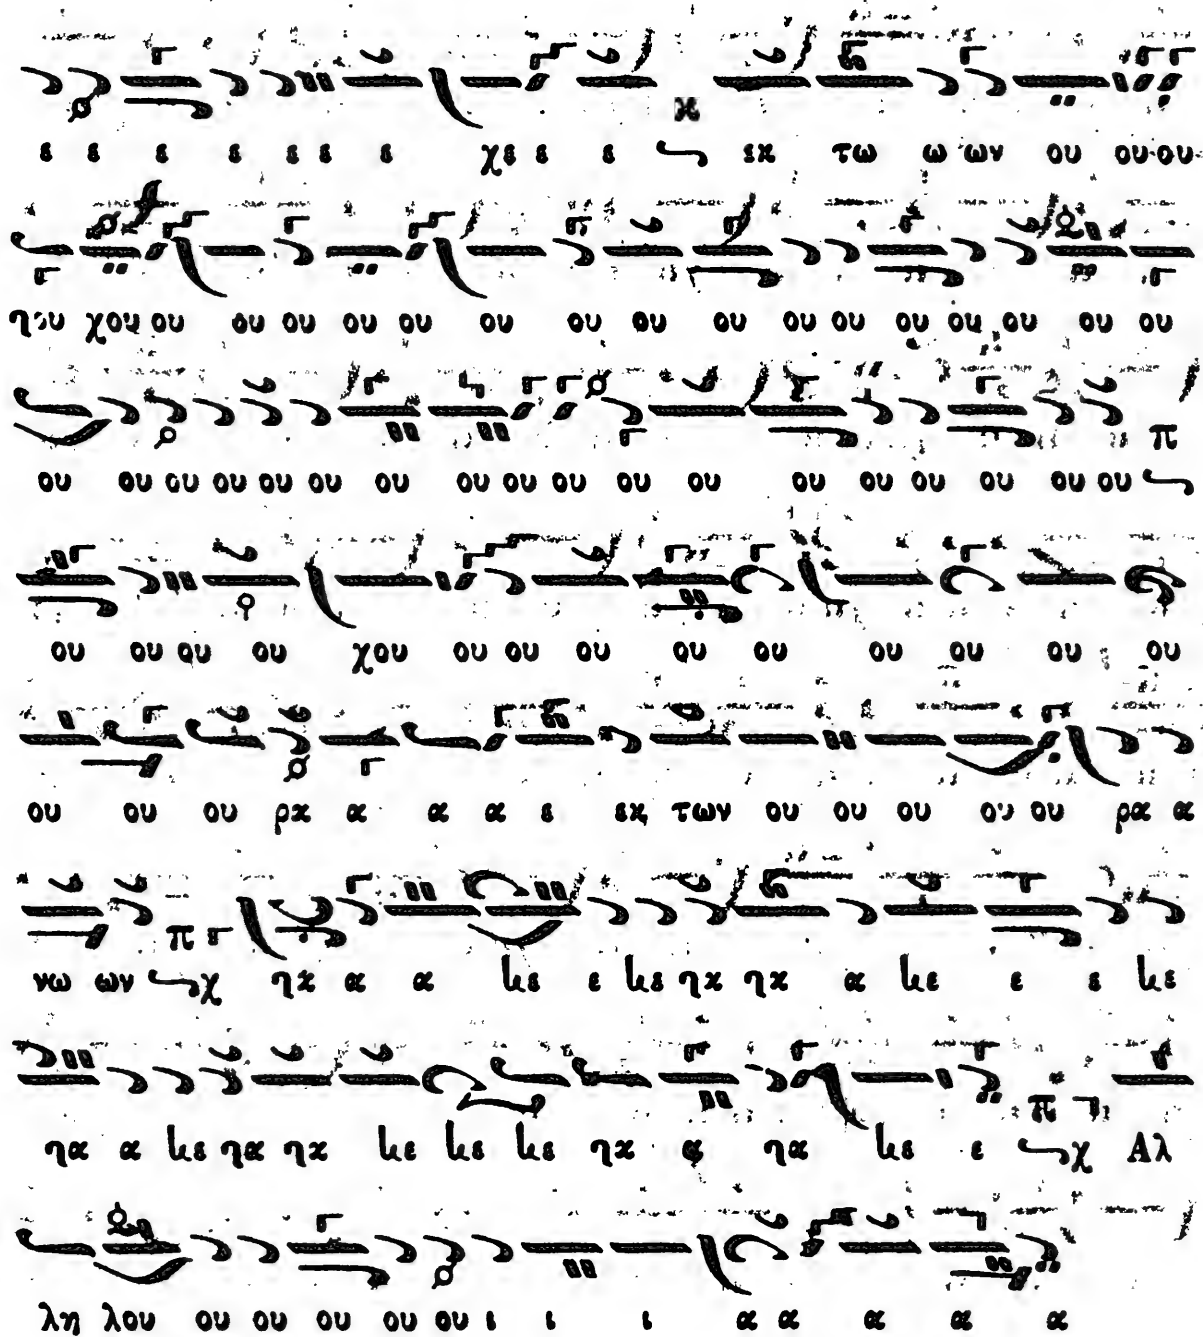 ε ε ε ε ε ε ε χε ε ε εκ τω ω ων ου ου ου
ηου χου ου ου ου ου ου ου ου ου ου ου ου ου ου ου ου ου
ου ου ου ου ου ου ου ου ου ου ου ου ου ου ου ου ου ου π
ου ου ου ου χου ου ου ου ου ου ου ου ου ου
ου ου ου ρα α α α ε εκ των ου ου ου ου ου ρα α
νω ων π χ ηα α α με ε με ηα ηα α με ε ε με
ηα α με ηα ηα με με με ηα α ηα με ε π χ Αλ
λη λου ου ου ου ου ου ι ι ι α α α α α